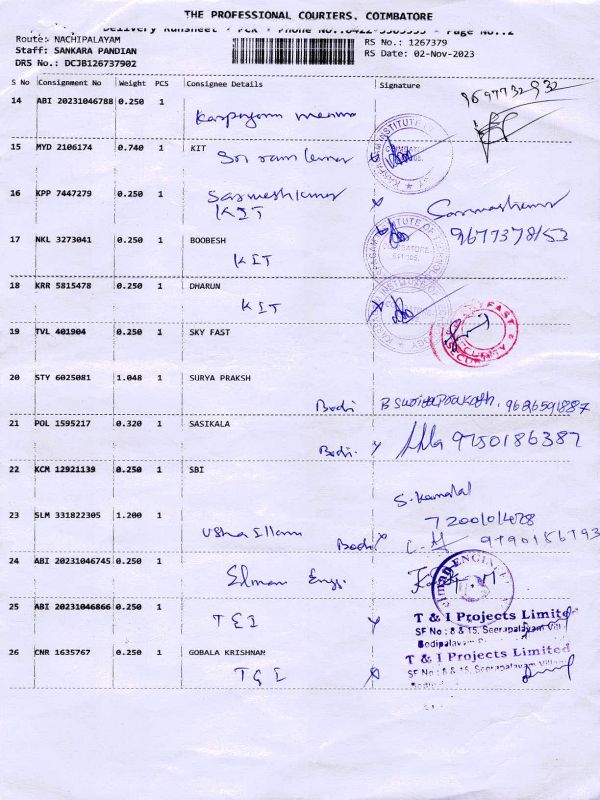 THE PROFESSIONAL COURIERS. COIMBATORE
Delivery Runsheet - PCR - Phone No.:0422- - Page No.:2
Route: NACHIPALAYAM
RS No.: 1267379
Staff: SANKARA PANDIAN
RS Date: 02-Nov-2023
DRS No.: DCJB126737902
S No Consignment No Weight PCS Consignee Details Signature
14 ABI 20231046788 0.250 1
9697732932
15 MYD 2106174 0.740 1 KIT
Sri ram kumar
16 KPP 7447279 0.250 1 Sarmeshkumar
KIT
9677378153
17 NKL 3273041 0.250 1 BOOBESH
KIT
18 KRR 5815478 0.250 1 DHARUN
KIT
19 TVL 401904 0.250 1 SKY FAST
SECURITY
20 STY 6025081 1.048 1 SURYA PRAKSH
Bodi B Suriya Prakash. 9626591887
21 POL 1595217 0.320 1 SASIKALA
Bodi. 9750186387
22 KCM 12921139 0.250 1 SBI
S. Kamatal
23 SLM 331822305 1.200 1
Usha Illam Bodi
24 ABI 20231046745 0.250 1
Elman Engg.
25 ABI 20231046866 0.250 1
T & I Projects Limited
SF No : 8 & 15, Seerapalayam Vill
Bodipalayam
TEI
26 CNR 1635767 0.250 1 GOBALA KRISHNAN
T & I Projects Limited
SF No : 8 & 15, Seerapalayam Villag
TGI